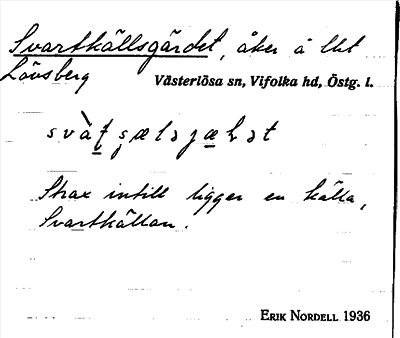 Svartkällsgärdet, åker å lht
Lövsberg
Västerlösa sn, Vifolka hd, Östg. l.
Strax intill ligger en källa,
Svartkällan.
ERIK NORDELL 1936